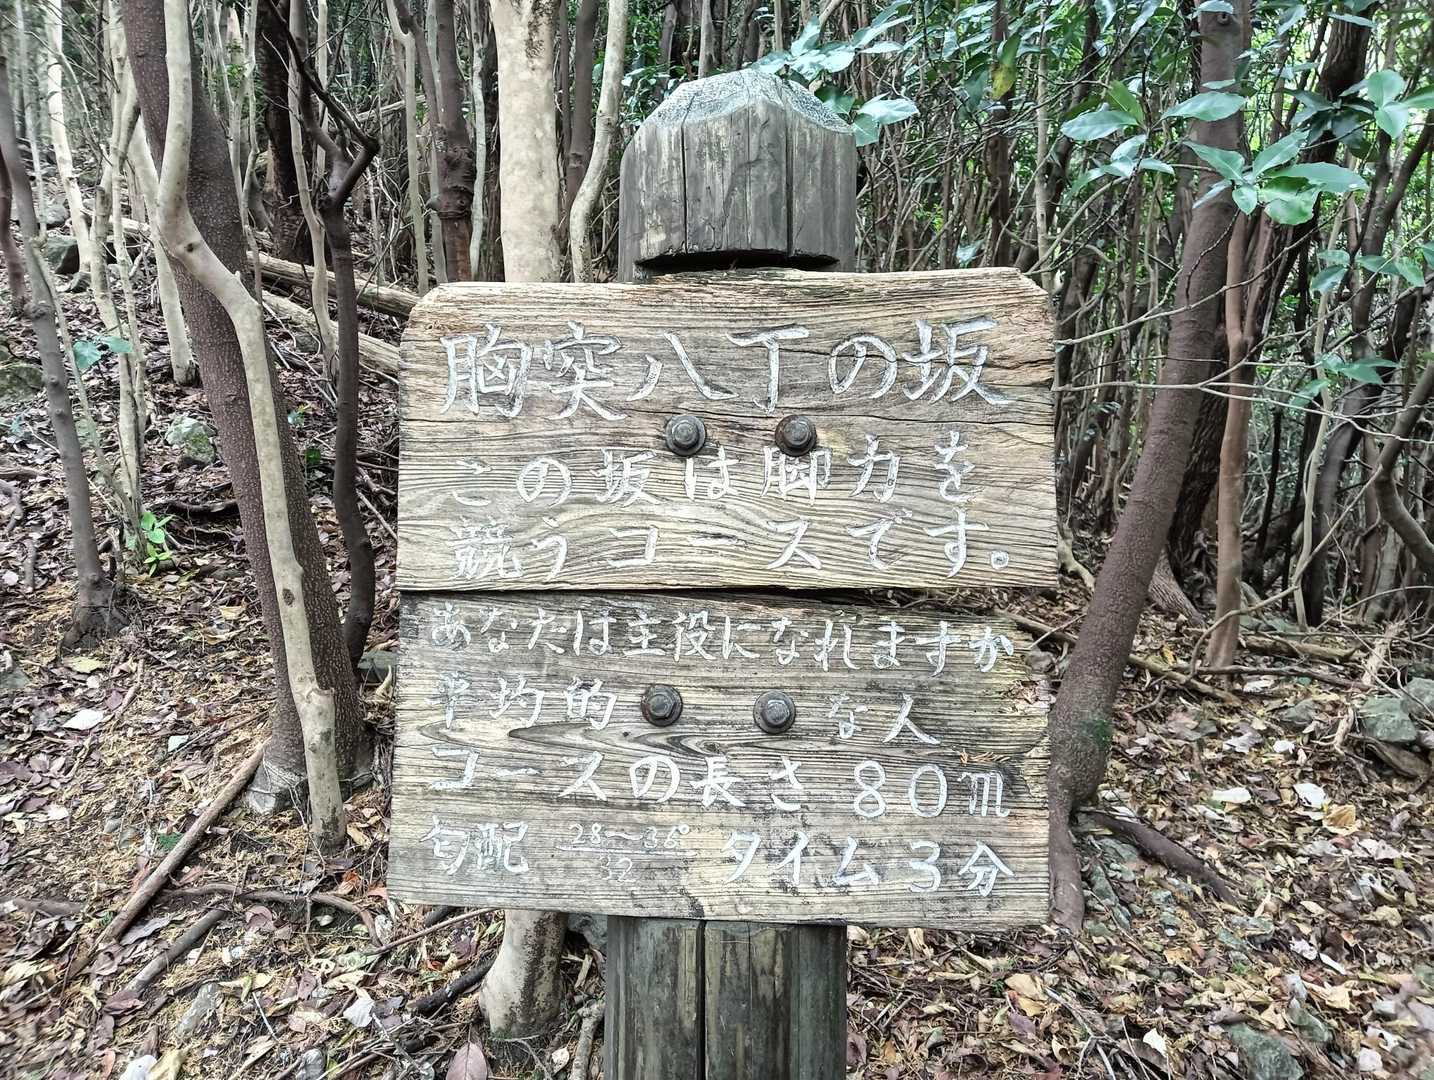 胸突八丁の坂
この坂は脚力を
競うコースです。
あなたは主役になれますか
平均的な人
コースの長さ80m
勾配 28〜36° タイム3分
32